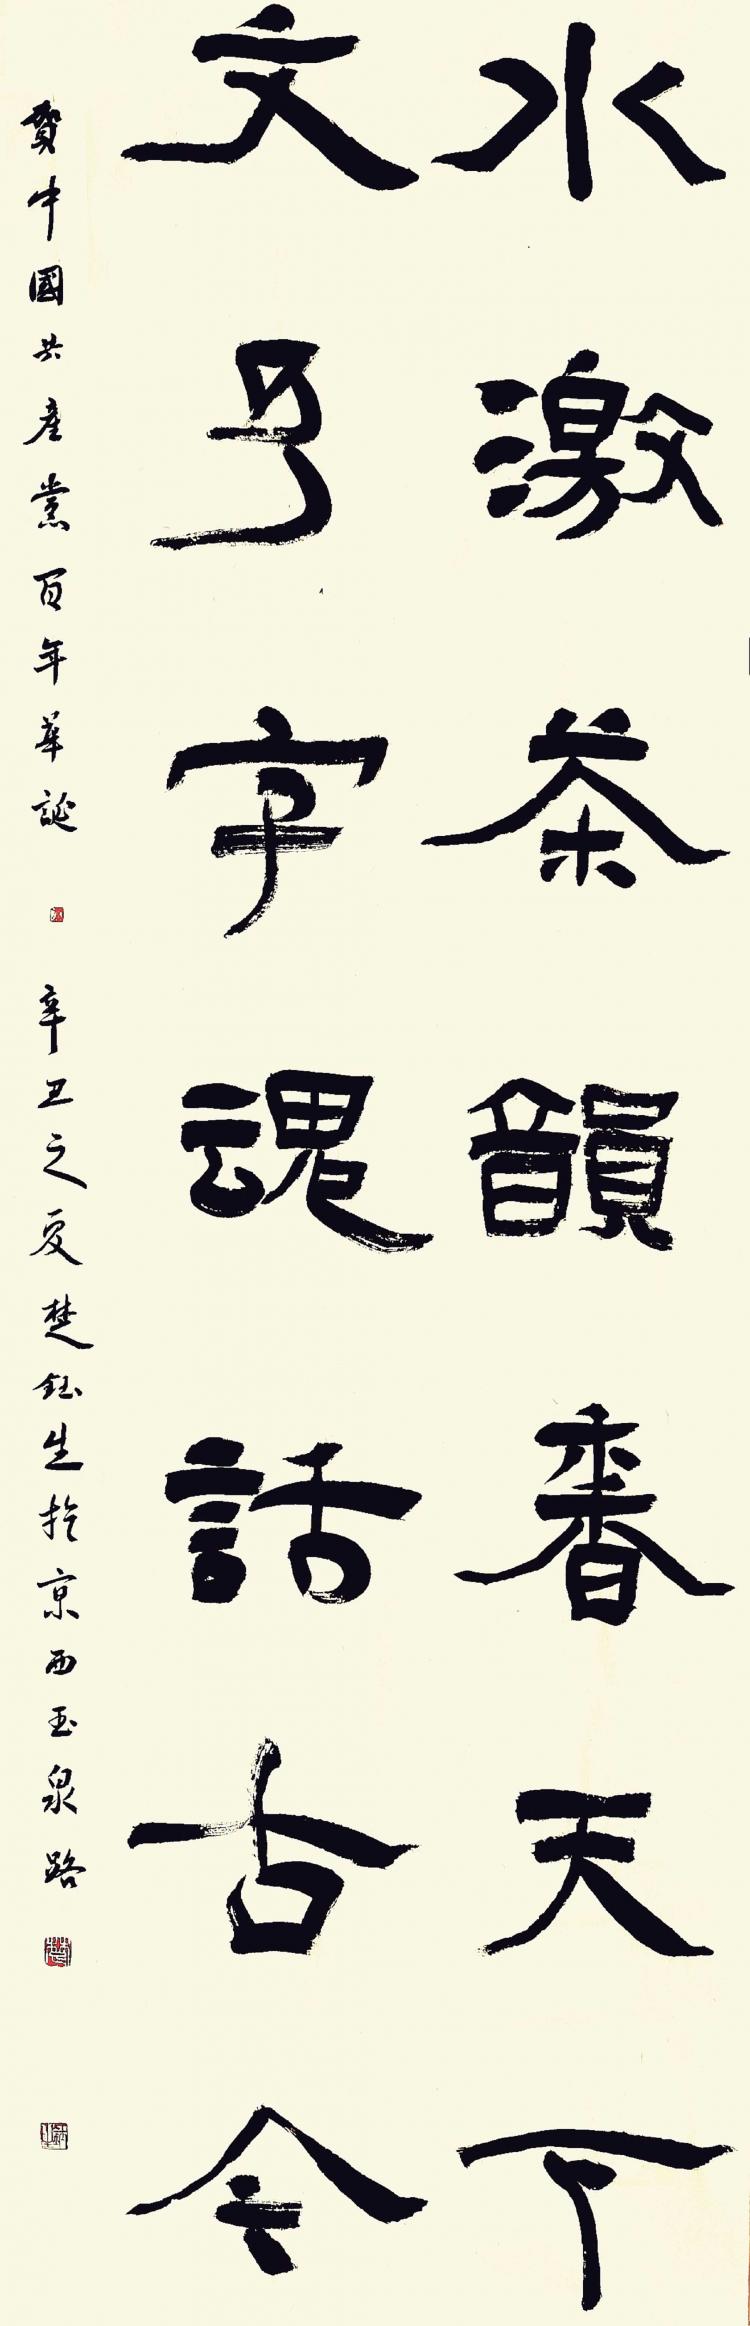 水激茶韻香天下
文予字魂話古今
賀中國共產黨百年華誕 辛丑之夏楚鈺生於京西玉泉路